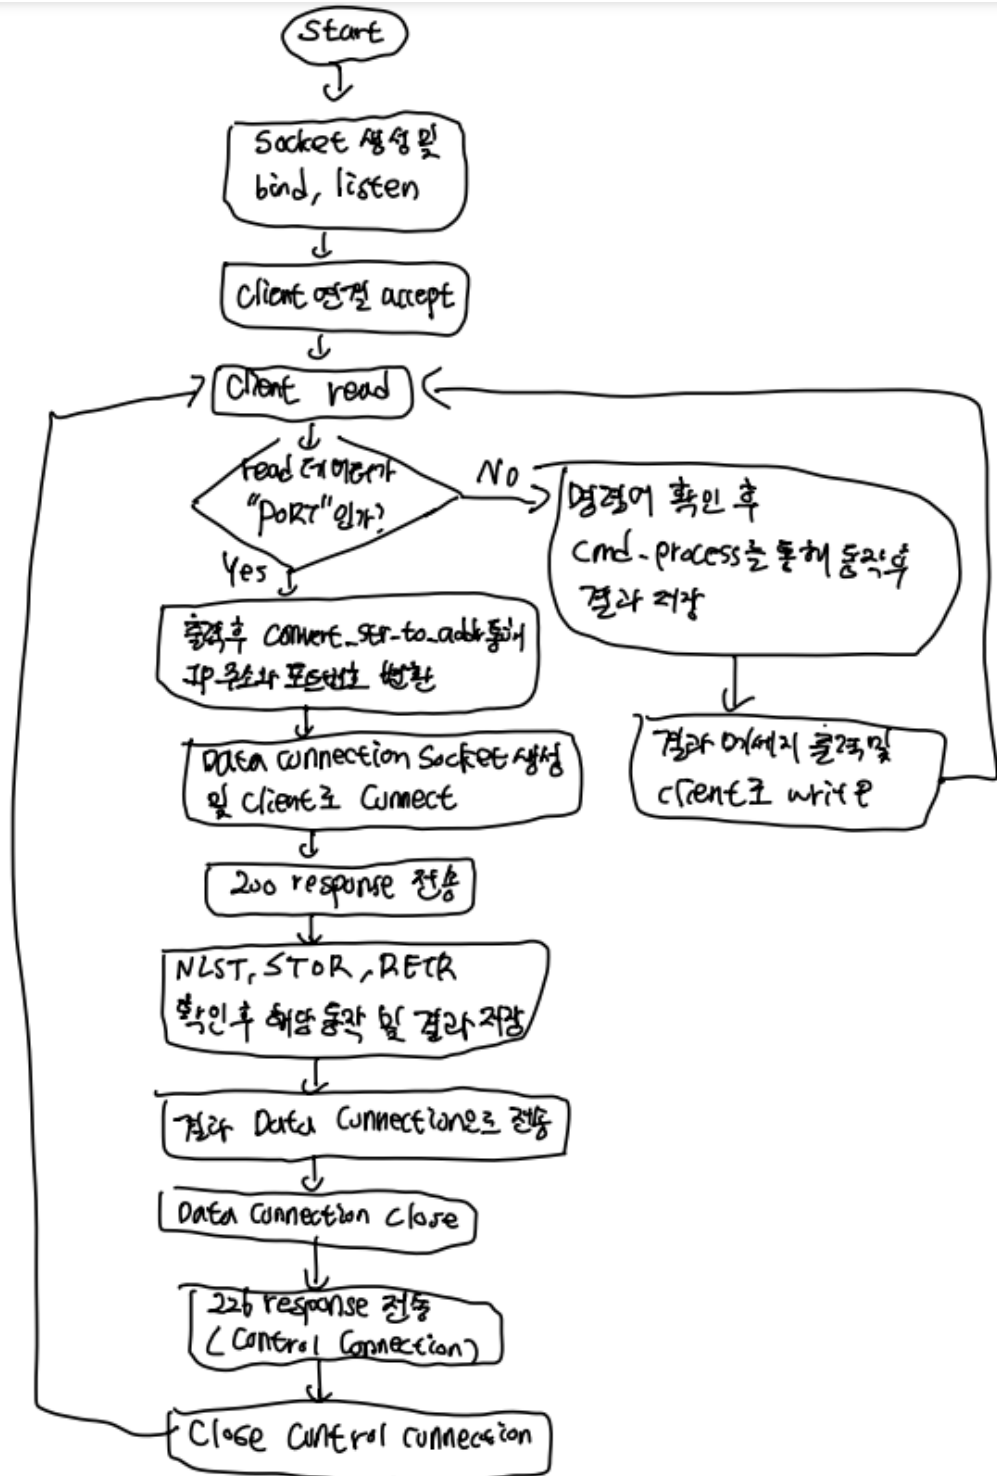 Start
Socket 생성 및
bind, listen
Client 연결 accept
Client read
read 데이터가
"PORT"인가?
No
Yes
명령어 확인 후
cmd_process를 통해 동작후
결과 저장
결과 메세지 출력 및
client로 write
출력후 convert_str_to_addr통해
IP주소와 포트번호 변환
Data connection Socket 생성
및 client로 Connect
200 response 전송
NLST, STOR, RETR
확인 후 해당 동작 및 결과 저장
결과 Data Connection으로 전송
Data Connection Close
226 response 전송
(Control Connection)
Close Control connection